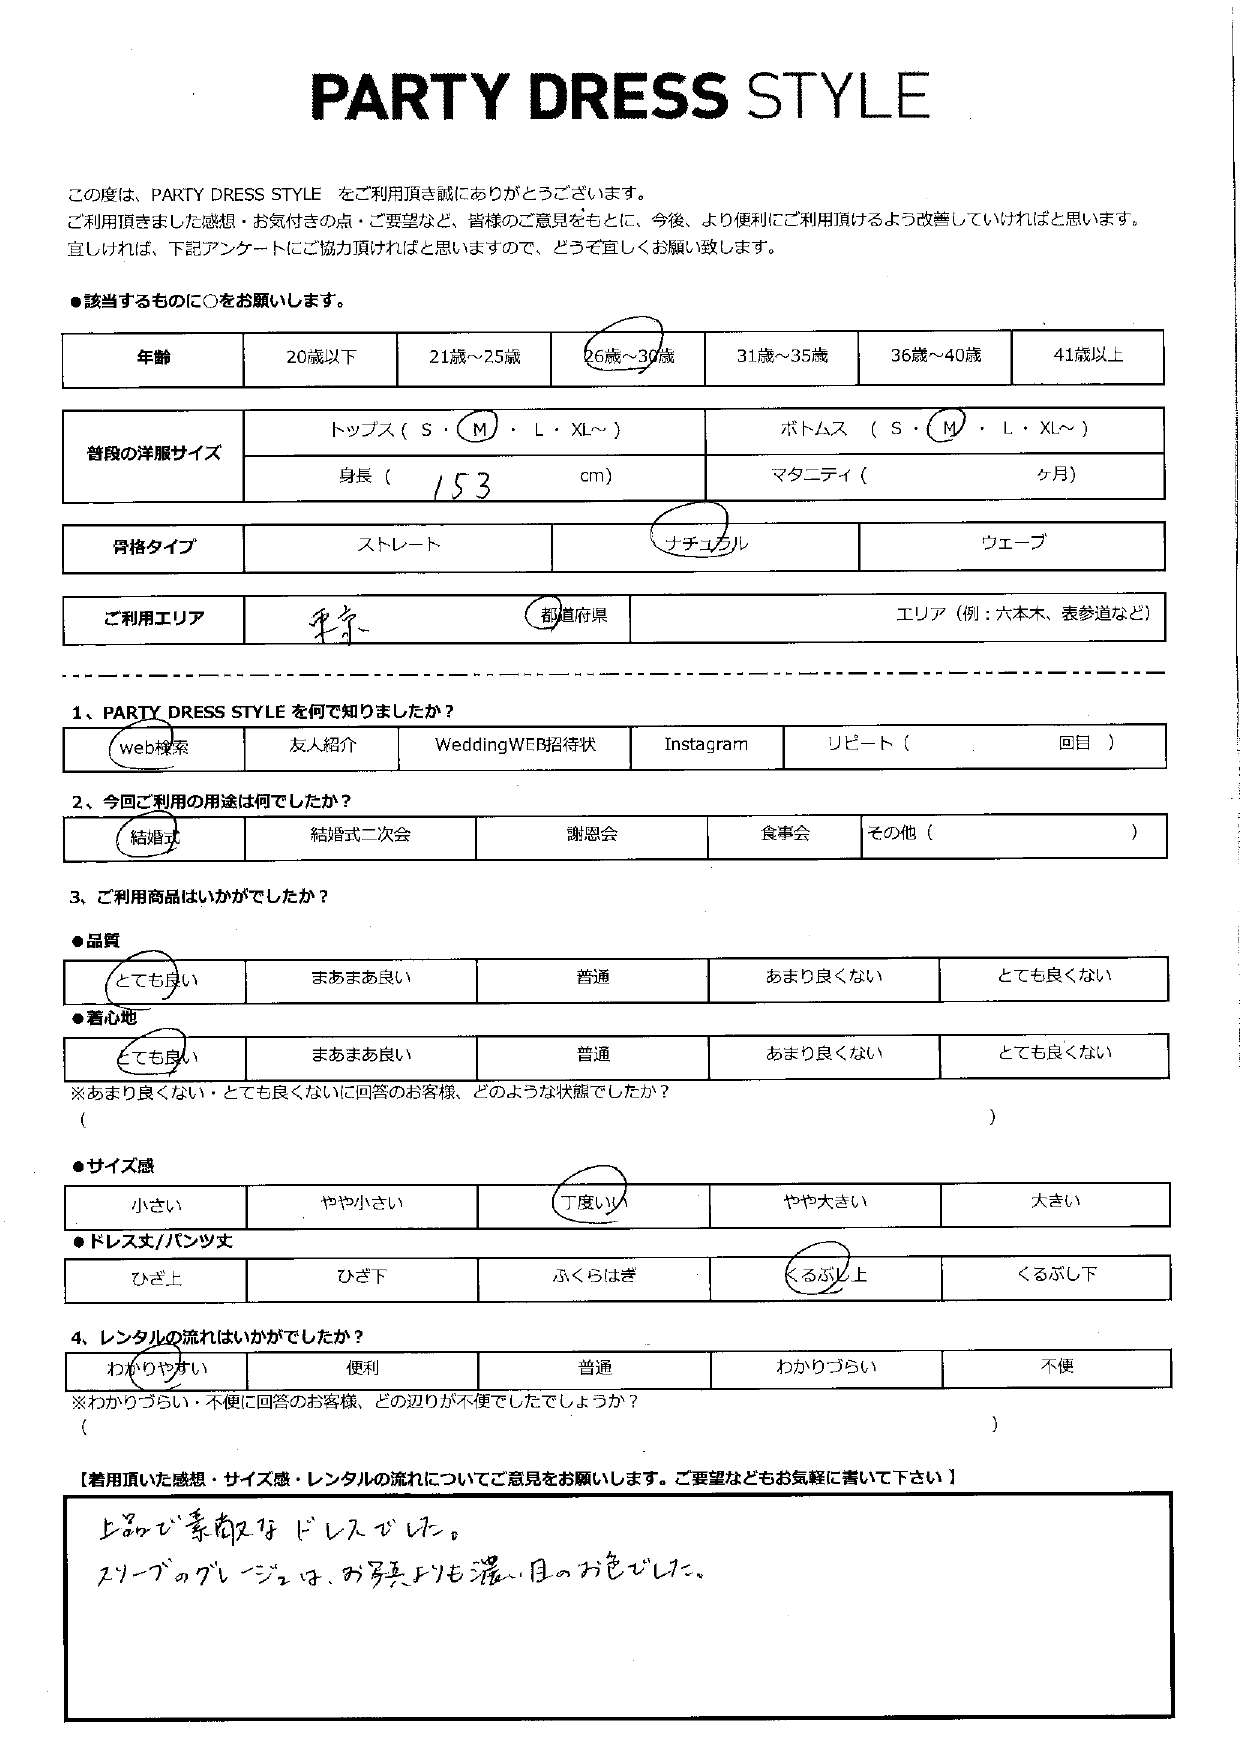 PARTY DRESS STYLE
この度は、PARTY DRESS STYLE をご利用頂き誠にありがとうございます。
ご利用頂きました感想・お気付きの点・ご要望など、皆様のご意見をもとに、今後、より便利にご利用頂けるよう改善していければと思います。
宜しければ、下記アンケートにご協力頂ければと思いますので、どうぞ宜しくお願い致します。
●該当するものに○をお願いします。
年齢 20歳以下 21歳～25歳 26歳～30歳 31歳～35歳 36歳～40歳 41歳以上
普段の洋服サイズ トップス ( S ・ M ・ L ・ XL～ ) ボトムス ( S ・ M ・ L ・ XL～ )
身長 ( 153 cm) マタニティ ( ヶ月)
骨格タイプ ストレート ナチュラル ウェーブ
ご利用エリア 東京 都道府県 エリア（例：六本木、表参道など）
1、PARTY DRESS STYLE を何で知りましたか？
web検索 友人紹介 WeddingWEB招待状 Instagram リピート ( 回目 )
2、今回ご利用の用途は何でしたか？
結婚式 結婚式二次会 謝恩会 食事会 その他 ( )
3、ご利用商品はいかがでしたか？
●品質
とても良い まあまあ良い 普通 あまり良くない とても良くない
●着心地
とても良い まあまあ良い 普通 あまり良くない とても良くない
※あまり良くない・とても良くないに回答のお客様、どのような状態でしたか？
( )
●サイズ感
小さい やや小さい 丁度いい やや大きい 大きい
●ドレス丈/パンツ丈
ひざ上 ひざ下 ふくらはぎ くるぶし上 くるぶし下
4、レンタルの流れはいかがでしたか？
わかりやすい 便利 普通 わかりづらい 不便
※わかりづらい・不便に回答のお客様、どの辺りが不便でしたでしょうか？
( )
【着用頂いた感想・サイズ感・レンタルの流れについてご意見をお願いします。ご要望などもお気軽に書いて下さい】
上品で素敵なドレスでした。
スリーブのグレージュは、お写真よりも濃い目のお色でした。